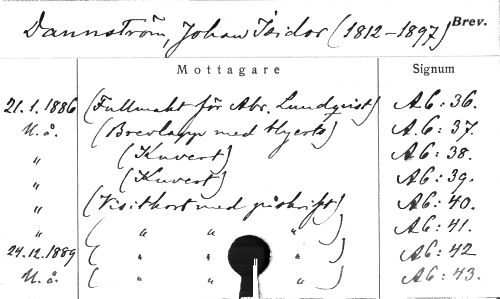 Dannström, Johan Isidor (1812-1897) Brev.
Mottagare Signum
21.1.1886 (Fullmakt för Abr. Lundqvist) A6:36.
U.å. (Brevlapp med Hyerts) A.6:37.
" (Kuvert) A6:38.
" (Kuvert) A6:39.
" (Visitkort med påskrift) A6:40.
" ( " " " ) A6:41.
24.12.1889 ( " " " ) A6:42
U.å. ( " " " ) A6:43.